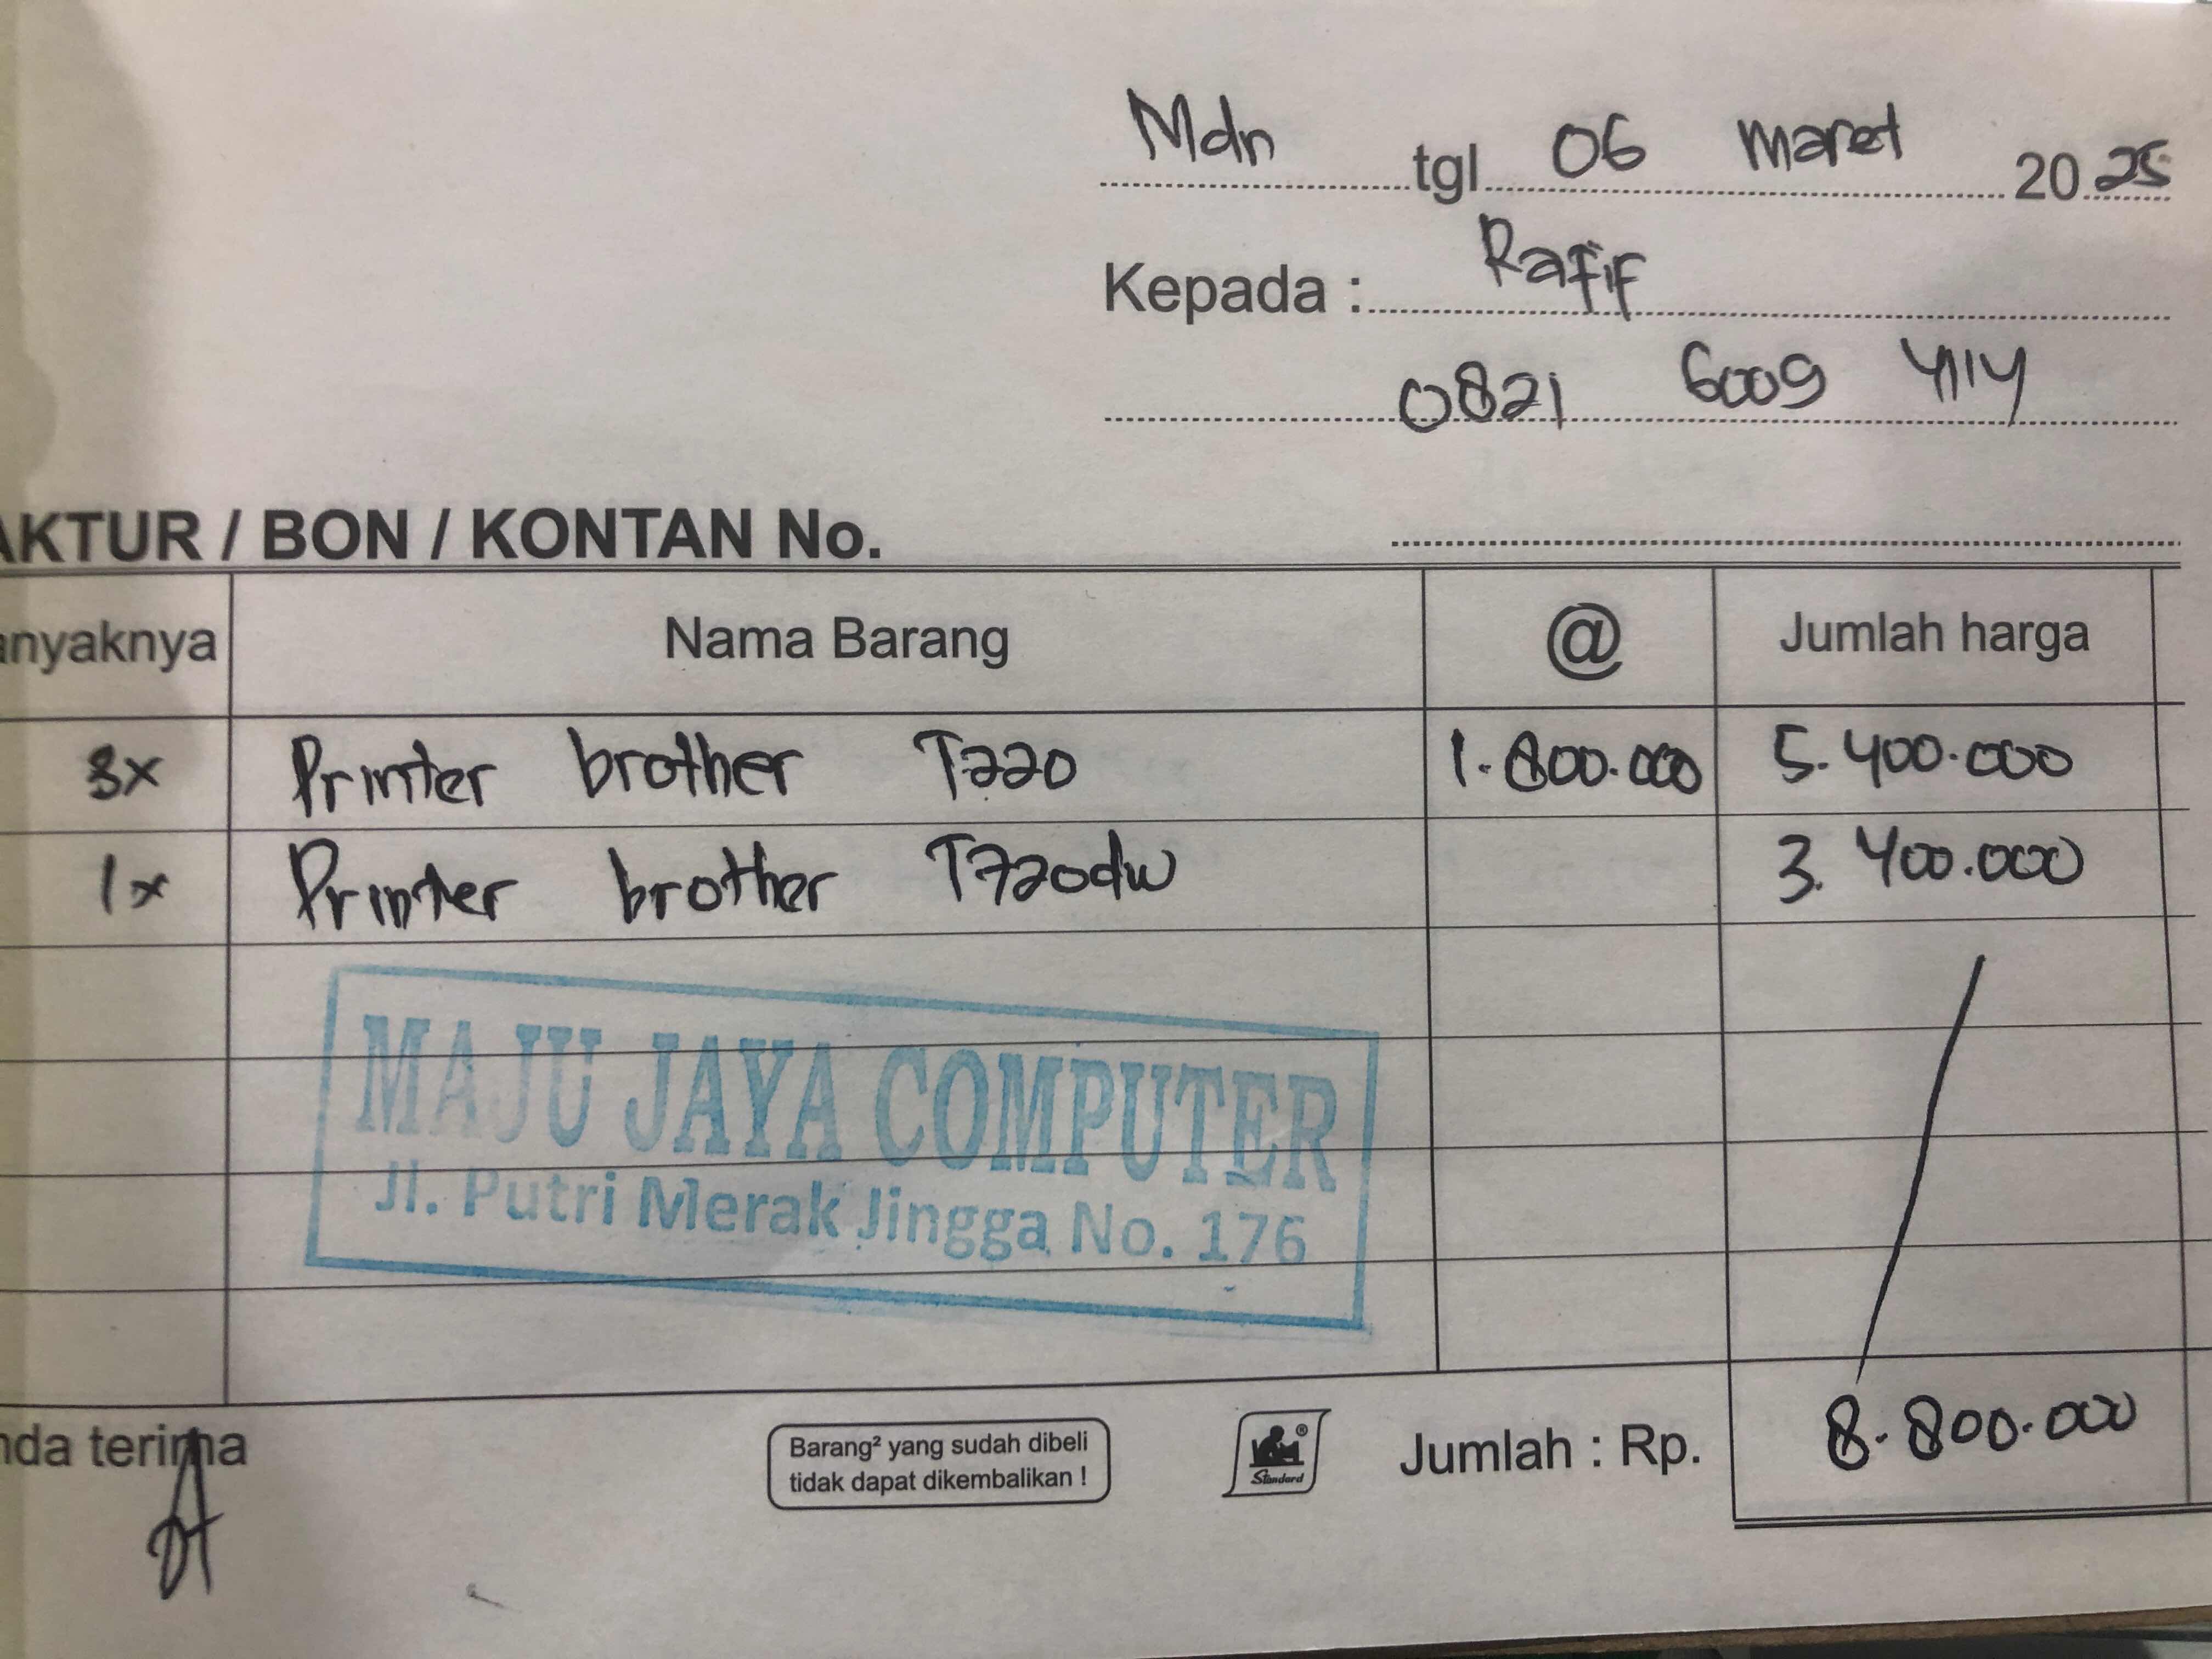 Mdn tgl 06 maret 2025
Kepada : Rafif
0821 6009 4114
AKTUR / BON / KONTAN No.
anyaknya Nama Barang @ Jumlah harga
3x Printer brother T220 1.800.000 5.400.000
1x Printer brother T720dw 3.400.000
MAJU JAYA COMPUTER
Jl. Putri Merak Jingga No. 176
nda terima
Barang² yang sudah dibeli
tidak dapat dikembalikan !
Standard
Jumlah : Rp. 8.800.000